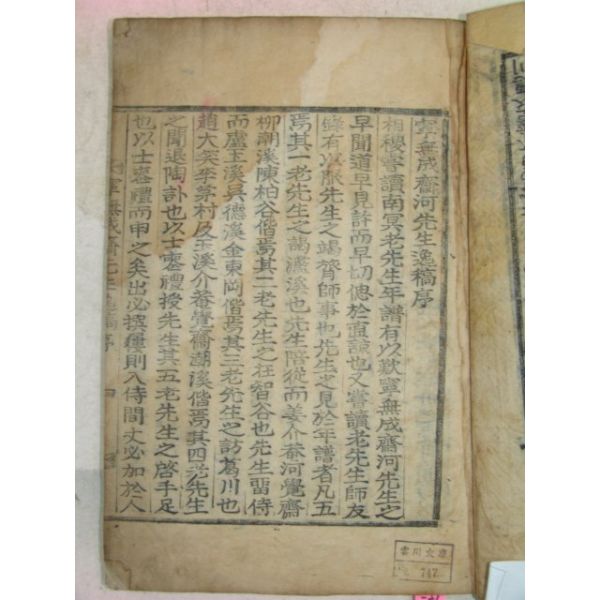 寧無成齋河先生逸稿序
相稷寧讀南冥老先生年譜有以歎寧無成齋河先生之
早聞道早見許而早切偲於直諒也又嘗讀老先生師友
錄有以服先生之竭膂師事也先生之見於年譜者凡五
焉其一老先生之謁濂溪也先生陪從而姜介菴河覺齋
柳潮溪陳栢谷偕焉其二老先生之在智谷也先生畱侍
而盧玉溪吳德溪金東岡偕焉其三老先生之訪葛川也
趙大笑李茅村及玉溪介菴覺齋潮溪偕焉其四老先生
之聞退陶訃也以士喪禮授先生其五老先生之啓手足
也以士喪禮而申之矣出必撰屨則入侍間丈必加於人
寧無成齋先生逸稿序
雲川文庫
747